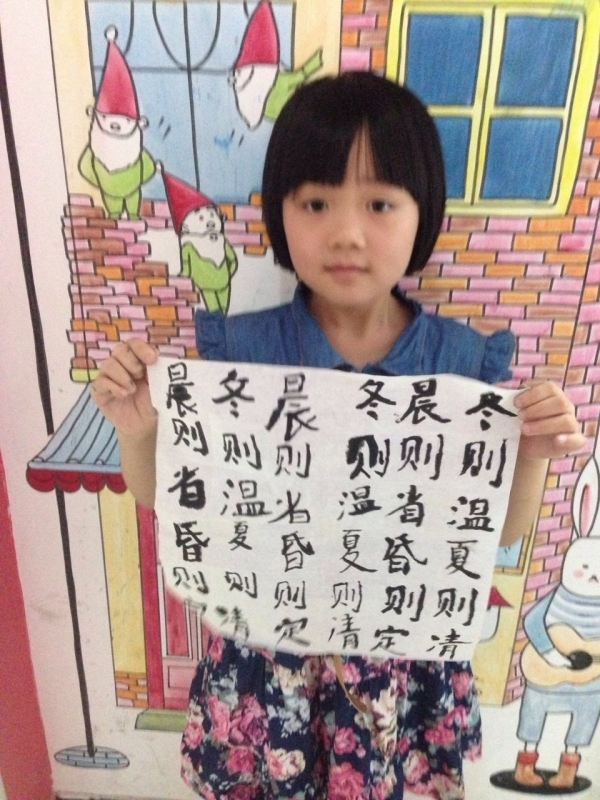 冬则温夏则清
晨则省昏则定
冬则温夏则清
晨则省昏则定
冬则温夏则清
晨则省昏则定